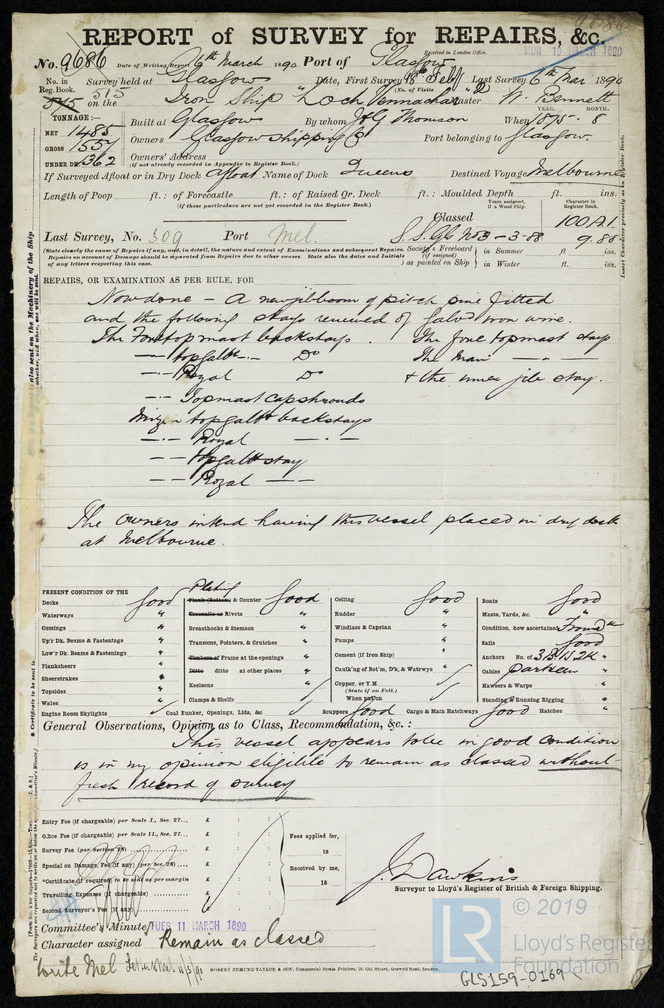 9686
REPORT of SURVEY for REPAIRS, &c.
Received in London Office.
MON 10 MARCH 1890
No. 9686 Date of Writing Report 6th March 1890 Port of Glasgow
No. in Reg. Book. Survey held at Glasgow Date, First Survey 18th Feby Last Survey 6th Mar 1890
(No. of Visits 2)
515 on the Iron Ship "Loch Vennachar" Master W. Bennett
TONNAGE:—
YEAR. MONTH.
NET 1485 Built at Glasgow By whom J&G Thomson When 1875 - 8
GROSS 1557 Owners Glasgow Shipping Co Port belonging to Glasgow.
UNDER DK 1362 Owners' Address
(if not already recorded in Appendix to Register Book.)
If Surveyed Afloat or in Dry Dock afloat Name of Dock Queens Destined Voyage Melbourne
Length of Poop ft.: of Forecastle ft.: of Raised Qr. Deck ft.: Moulded Depth ft. ins.
(If these particulars are not yet recorded in the Register Book.)
Years assigned, if a Wood Ship. Character in Register Book.
Classed 100 A.1.
Last Survey, No. 309 Port Mel. S.S. Gls No3 - 3 - 88 9.86
(State clearly the cause of Repairs if any, and, in detail, the nature and extent of Examinations and subsequent Repairs.
Repairs on account of Damage should be separated from Repairs due to other causes. State also the dates and Initials
of any letters respecting this case.
Society's Freeboard (if assigned) as painted on Ship in Summer ft. ins.
in Winter ft. ins.
REPAIRS, OR EXAMINATION AS PER RULE, FOR
Now done — A new jibboom of pitch pine fitted
and the following stays renewed of Galvd iron wire.
The Foretopmast backstays. The fore topmast stays
—·— topgallt —·— Do The Main — · —
—·— Royal Do & the inner jib stay.
—·— Topmast capshrouds
Mizen topgallt backstays
—·— Royal —·—
—— topgallt stay
—— Royal ——
The owners intend having this vessel placed in dry dock
at Melbourne.
PRESENT CONDITION OF THE
Decks Good
Waterways "
Comings "
Up'r Dk. Beams & Fastenings "
Low'r Dk. Beams & Fastenings "
Planksheers "
Sheerstrakes "
Topsides "
Wales "
Engine Room Skylights
Plating
Plank (Bottom) & Counter Good
Treenails or Rivets "
Breasthooks & Stemson "
Transoms, Pointers, & Crutches "
Timbers of Frame at the openings "
Ditto ditto at other places "
Keelsons "
Clamps & Shelfs
Coal Bunker, Openings, Lids, &c
Ceiling Good
Rudder "
Windlass & Capstan "
Pumps "
Cement (if Iron Ship) "
Caulk'g of Bot'm, D'k, & Watrwys "
Copper, or Y.M.
(State if on Felt.)
When put on
Scuppers Good Cargo & Main Hatchways Good Hatches "
Boats Good
Masts, Yards, &c. "
Condition, how ascertained From dk
Sails Good
Anchors No. of 3B 1S 2K "
Cables "
Hawsers & Warps "
Standing & Running Rigging "
General Observations, Opinion as to Class, Recommendation, &c. :
This vessel appears to be in good condition
is in my opinion eligible to remain as classed without
fresh record of survey
Entry Fee (if chargeable) per Scale I., Sec. 27... £ : :
Office Fee (if chargeable) per Scale II., Sec. 27... £ : :
Survey Fee (per Section 28) £ : :
Special or Damage Fee (if any) (per Sec. 28) £ : :
*Certificate (if required) to be sent as per margin £ : :
Travelling Expenses (if chargeable) £ : :
Second Surveyor's Fee (if any) £ : :
Fees applied for,
18
Received by me,
18
J. Dawkins
Surveyor to Lloyd's Register of British & Foreign Shipping.
Committee's Minute TUES 11 MARCH 1890
Character assigned Remain as classed
Write Mel
ROBERT EDMUND TAYLOR & SON, Commercial Steam Printers, 19, Old Street, Goswell Road, London.
GLS159-0169
LR © 2019
Lloyd's Register
Foundation